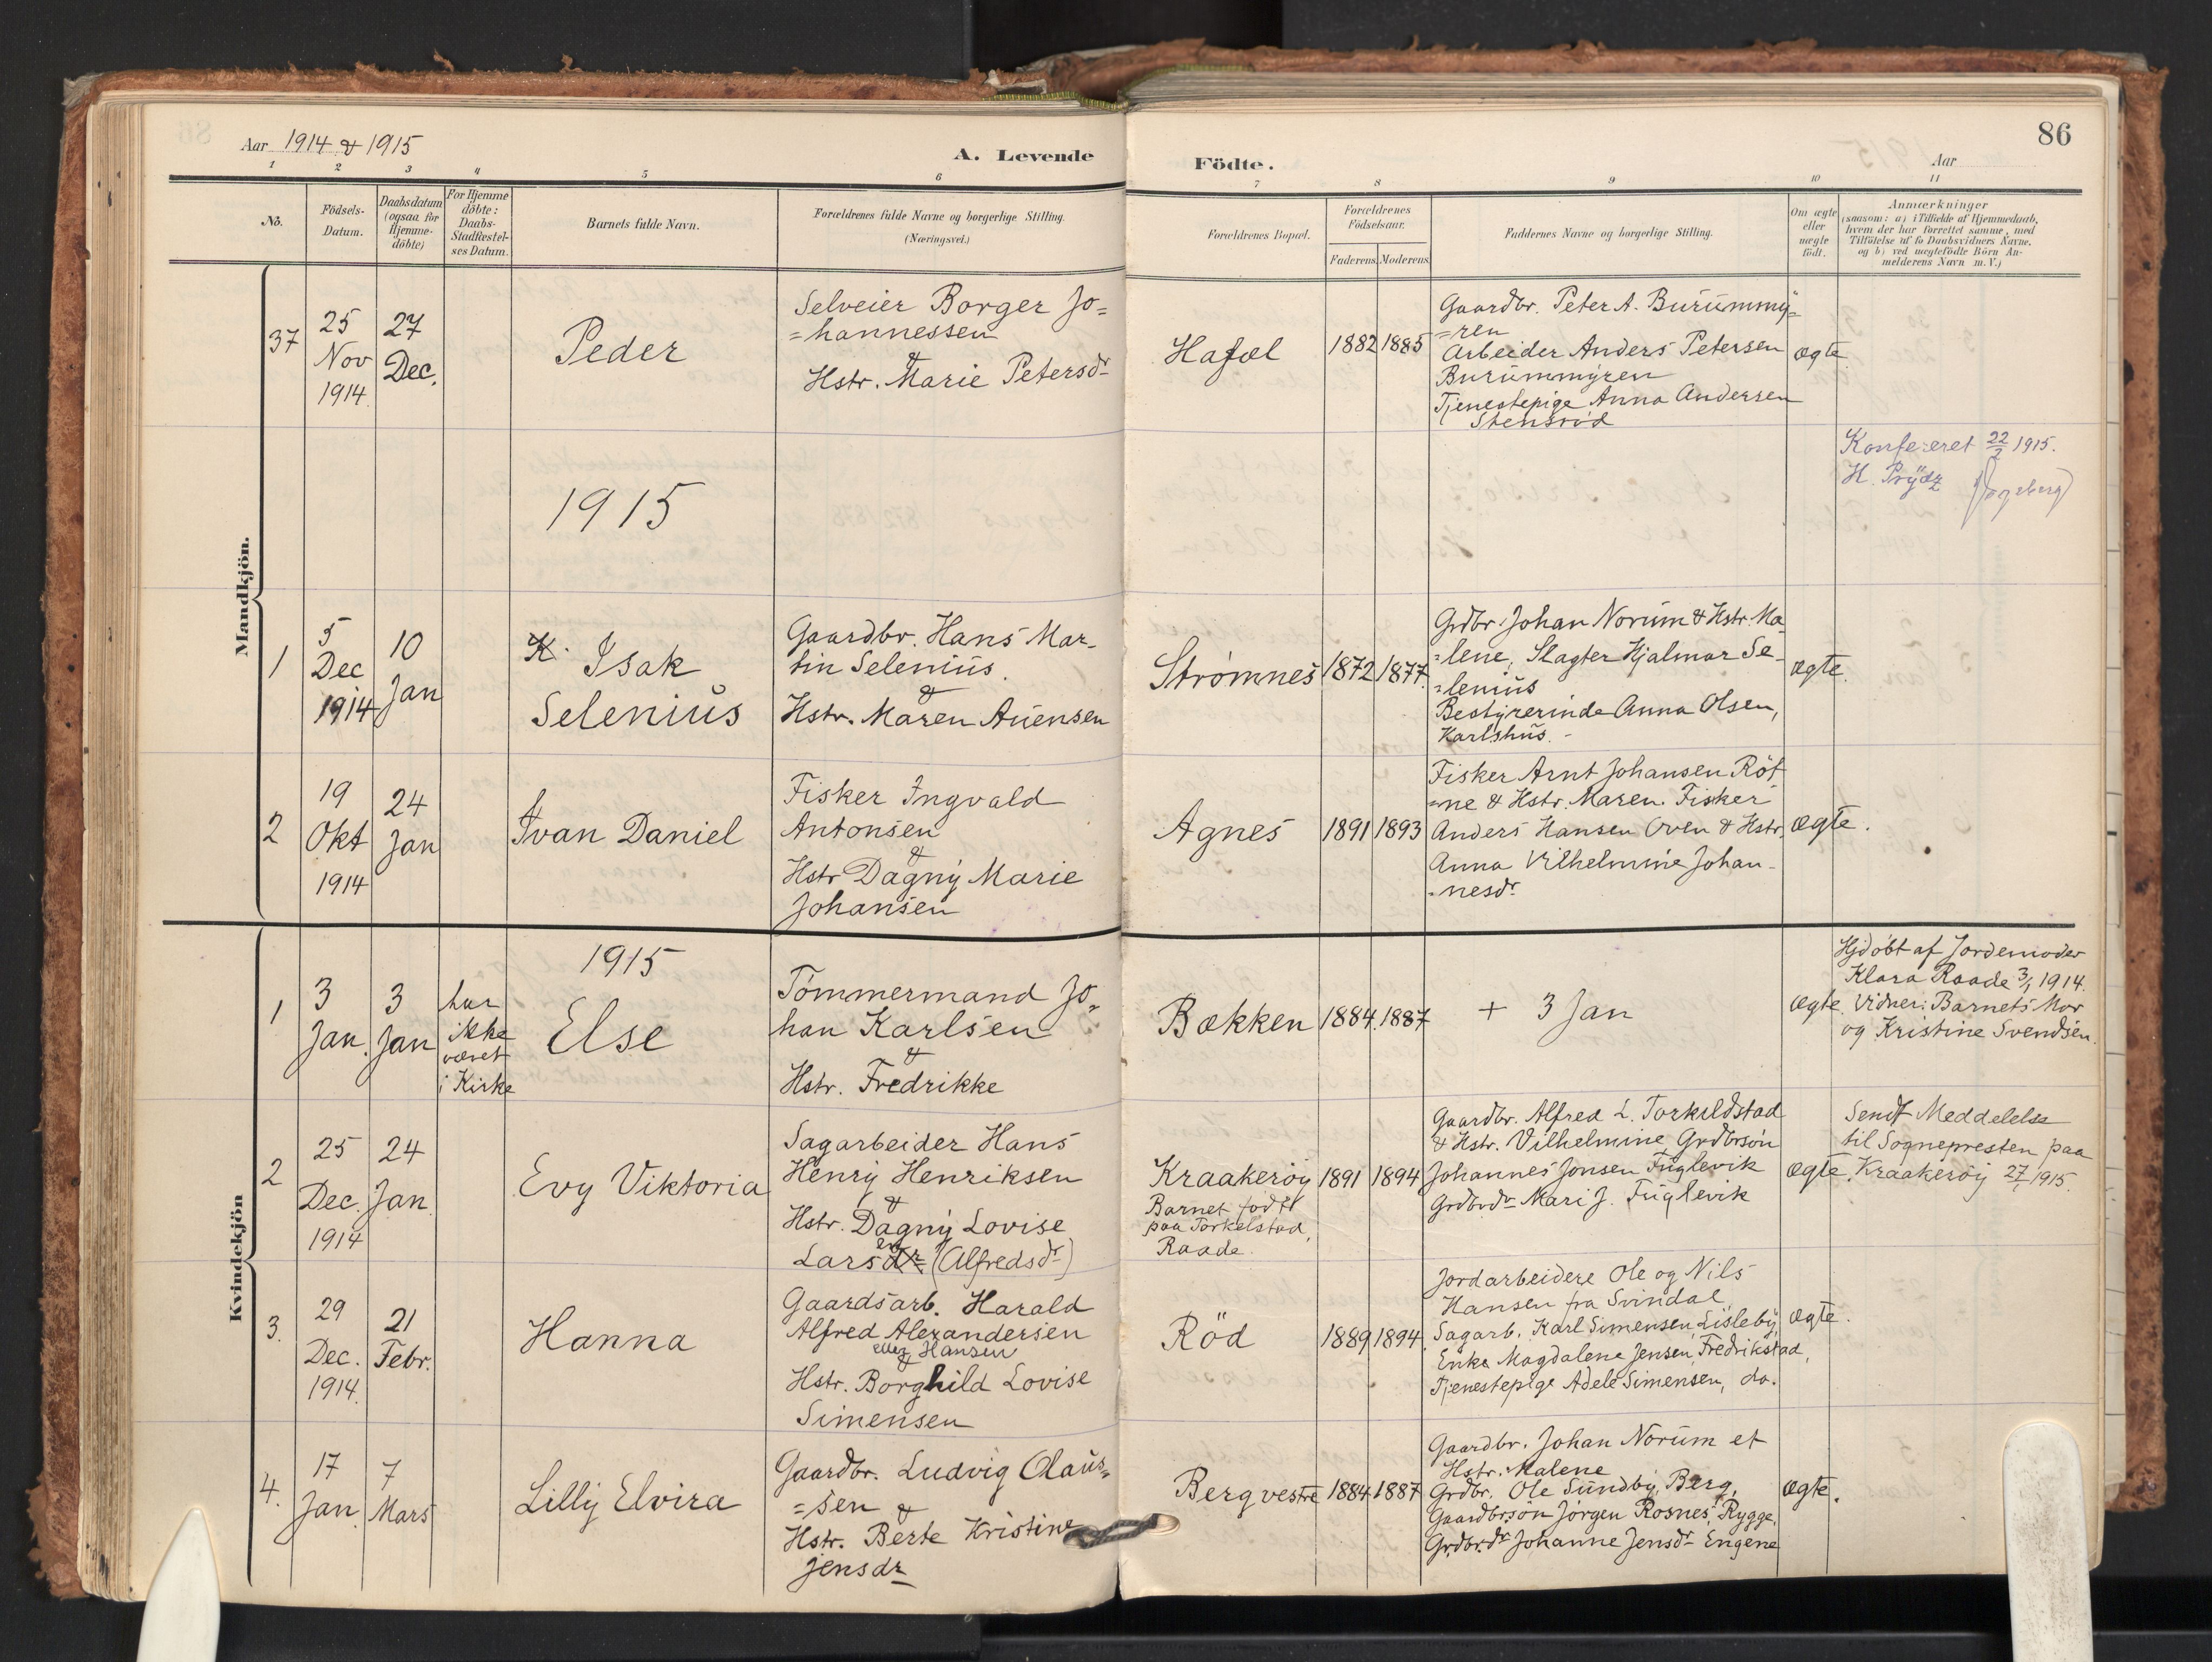 86
Aar 1914 & 1915
A. Levende
Födte.
Aar
1 2 3 4 5 6 7 8 9 10 11
No.
Födsels-
Datum.
Daabsdatum
(ogsaa for
Hjemme-
döbte)
For Hjemme
döbte:
Daabs-
Stadfæstel-
ses Datum.
Barnets fulde Navn.
Forældrenes fulde Navne og borgerlige Stilling.
(Næringsvei.)
Forældrenes Bopæl.
Forældrenes
Födselsaar.
Faderens. Moderens.
Faddernes Navne og borgerlige Stilling.
Om ægte
eller
uægte
födt.
Anmærkninger
(saasom: a) i Tilfælde af Hjemmedaab,
hvem der har forrettet samme, med
Tilföielse af to Daabsvidners Navne,
og b) ved uægtefödte Börn An-
melderens Navn m. V.)
Mandkjön.
37
25
Nov
1914.
27
Dec.
Peder
Selveier Borger Jo=
=hannessen
&
Hstr. Marie Petersdr
Hafæl
1882 1885
Gaardbr. Peter A. Burummy=
=ren
Arbeider Anders Petersen
Burummyren
Tjenestepige Anna Andersen
Stensrød
ægte
Konfereret 22/2 1915.
H. Prydz
1915
1
5
Dec
1914
10
Jan
K. Isak
Selenius
Gaardbr. Hans Mar-
tin Selenius.
&
Hstr. Maren Auensen
Strømnes
1872 1877.
Grdbr. Johan Norum & Hstr. Ma-
=lene, Slagter Hjalmar Se-
=lenius
Bestyrerinde Anna Olsen,
Karlshus. -
ægte.
2
19
Okt
1914
24
Jan
Ivan Daniel
Fisker Ingvald
Antonsen
&
Hstr Dagny Marie
Johansen
Agnes
1891 1893
Fisker Arnt Johansen Röt
=ne & Hstr. Maren. Fisker
Anders Hansen Oven & Hstr.
Anna Vilhelmine Johan-
-nesdr.
ægte.
Kvindekjön
1915
1
3
Jan.
3
Jan
har
ikke
været
i Kirke
Else
Tömmermand Jo=
han Karlsen
&
Hstr. Fredrikke
Bækken
1884. 1887
+ 3 Jan
ægte.
Hjdøbt af Jordemoder
Klara Raade 3/1 1914.
Vidner: Barnets Mor
og Kristine Svendsen.
2
25
Dec.
1914
24
Jan.
Evy Viktoria
Sagarbeider Hans
Henry Henriksen
&
Hstr. Dagny Lovise
Larsdr (Alfredsdr)
en
Kraakerøy
Barnet født
paa Torkelstad,
Raade.
1891 1894
Gaardbr. Alfred L. Torkildstad
& Hstr. Vilhelmine Grdbrsøn
Johannes Jonsen Fuglevik
Grdbrdr Mari J. Fuglevik
ægte.
Sendt Meddelelse
til Sognepresten paa
Kraakerøy 27/1 1915.
3.
29
Dec.
1914.
21
Febr.
Hanna
Gaardsarb. Harald
Alfred Alexandersen
eller Hansen
&
Hstr. Borghild Lovise
Simensen
Röd
1889 1894.
Jordarbeidere Ole og Nils
Hansen fra Svindal
Sagarb. Karl Simensen, Lisleby,
Enke Magdalene Jensen, Fredrikstad,
Tjenestepige Adele Simensen, do.
ægte.
4.
17
Jan.
7
Mars
Lilly Elvira
Gaardbr. Ludvig Olaus=
=sen &
Hstr. Berte Kristine
Jensdr
Berg vestre
1884 1887
Gaardbr. Johan Norum et
Hstr. Malene
Grdbr. Ole Sundby, Berg,
Gaardbrsøn Jørgen Rosnes, Rygge,
Grdbr.dr Johanne Jensdr Engene
ægte.